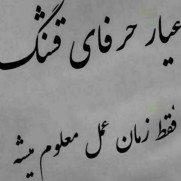 عیار حرفای قشنگ
فقط زمان عمل معلوم میشه